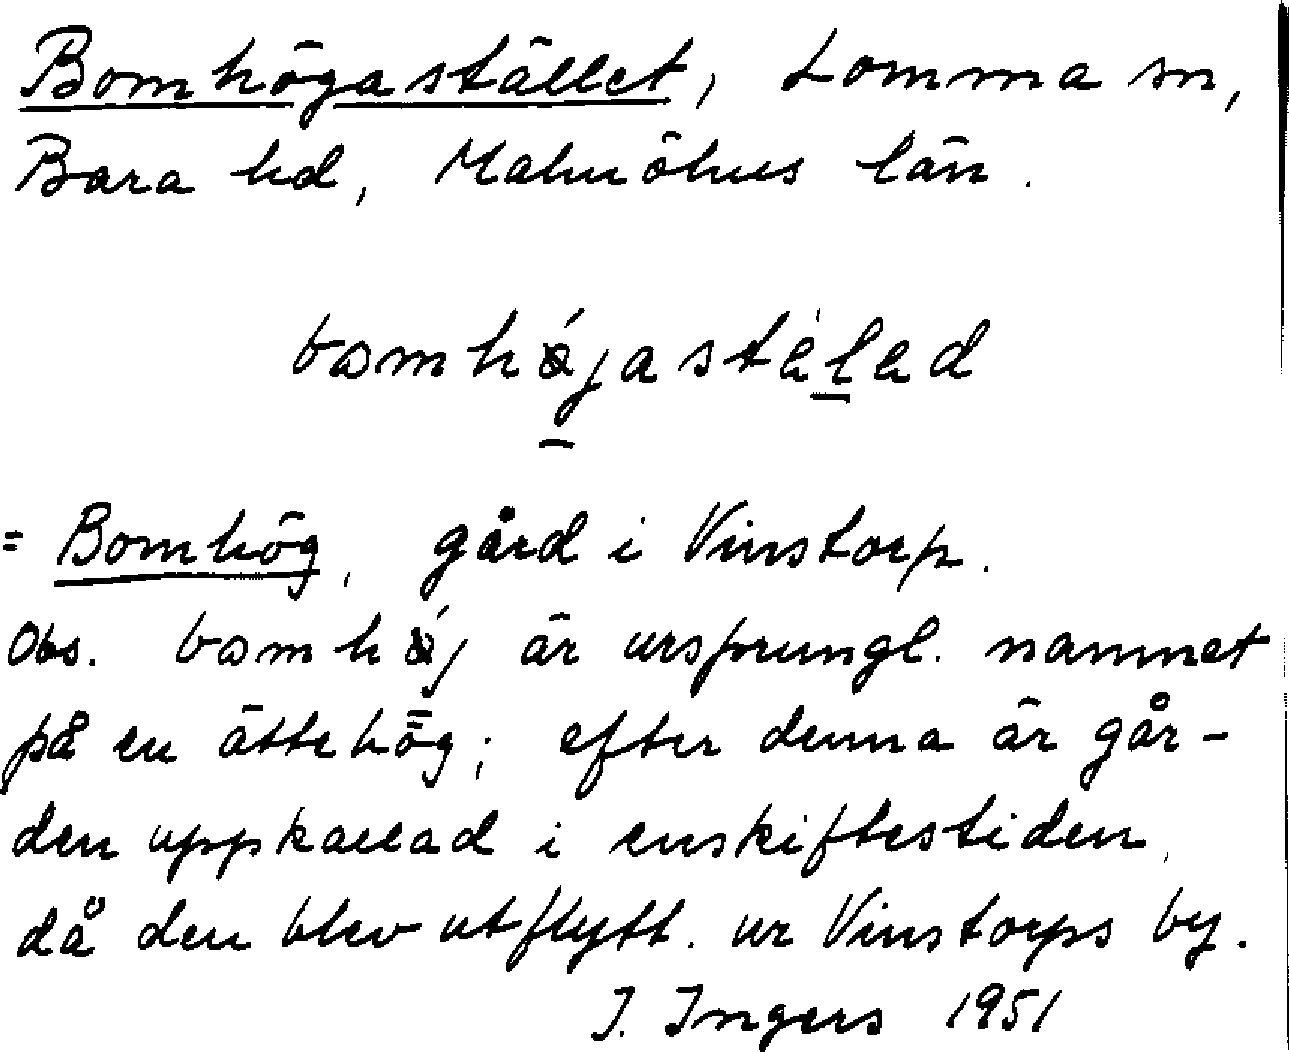 Bomhögastället, Lomma sn,
Bara hd, Malmöhus län.
bomhǿjastèled
= Bomhög, gård i Vinstorp.
Obs. bomhǿj är ursprungl. namnet
på en ättehög; efter denna är går-
den uppkallad i enskiftestiden,
då den blev utflytt. ur Vinstorps by.
I. Ingers 1951